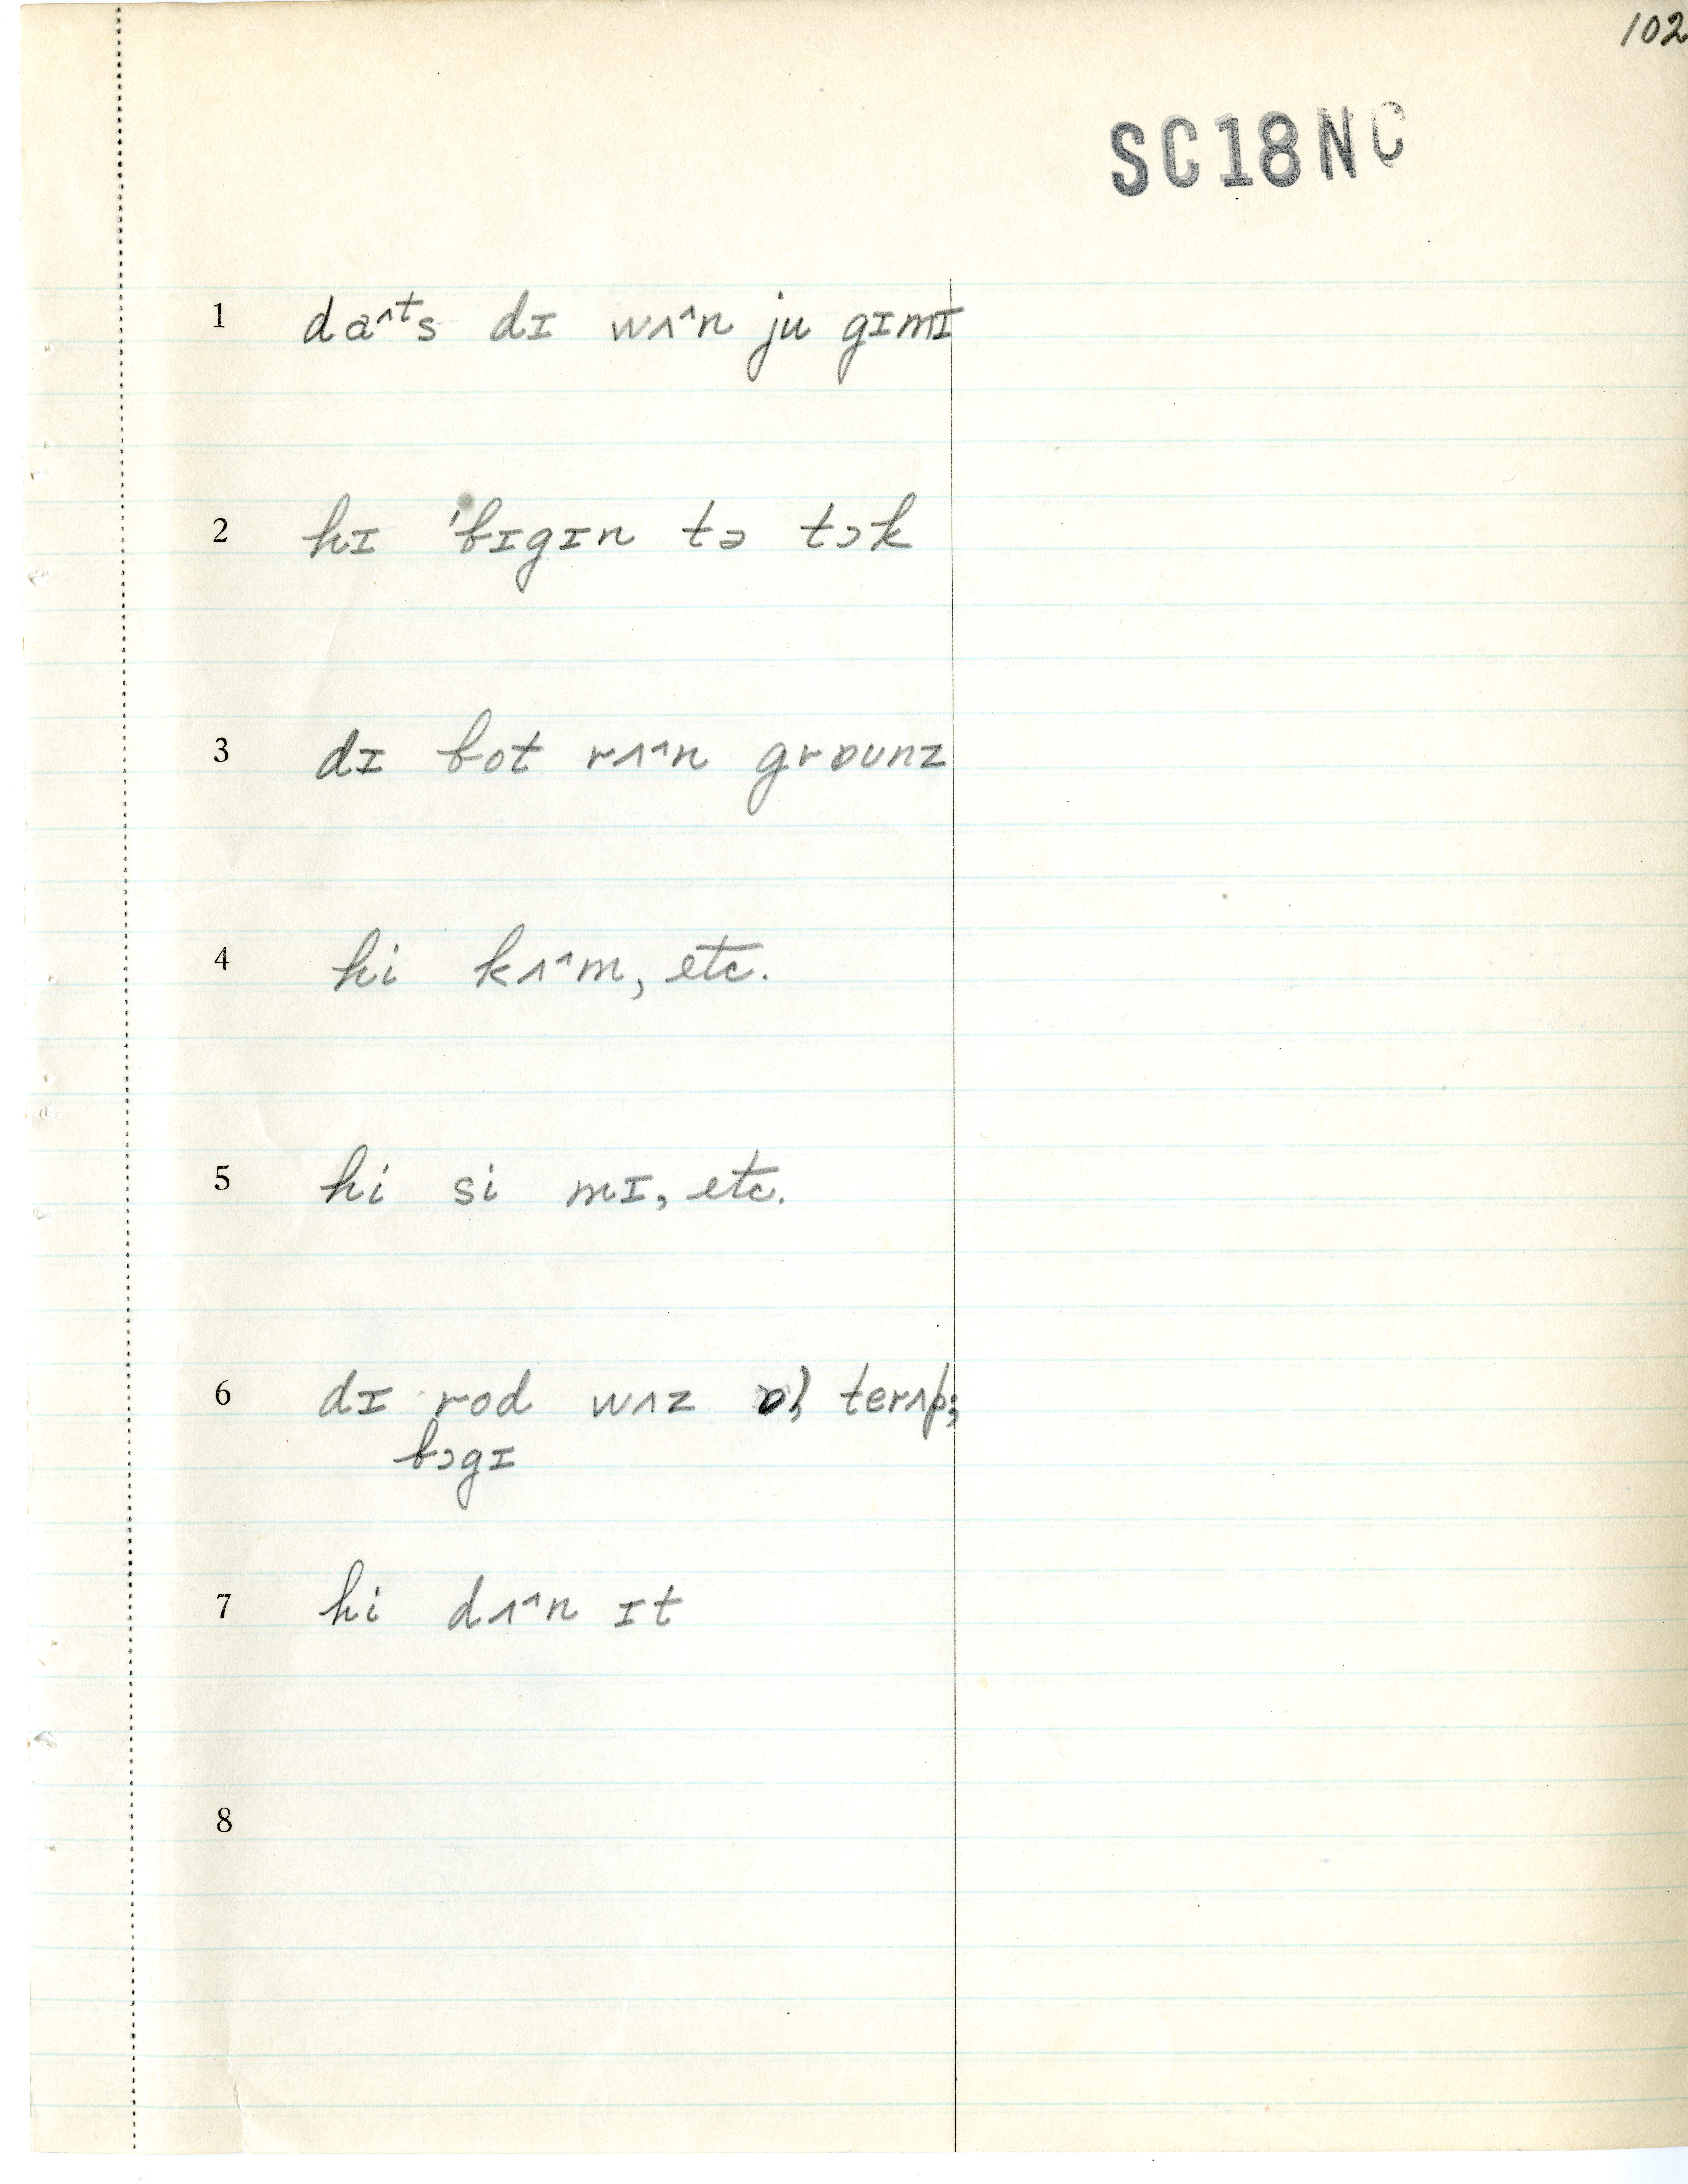 102
SC18NC
1 da^ᵗs dɪ wʌ^n ju gɪmɪ
2 hɪ 'bɪgɪn tə tɔk
3 dɪ bot rʌ^n grɒunz
4 hi kʌ^m, etc.
5 hi si mɪ, etc.
6 dɪ rod wʌz terʌp;
bɔgɪ
7 hi dʌ^n ɪt
8